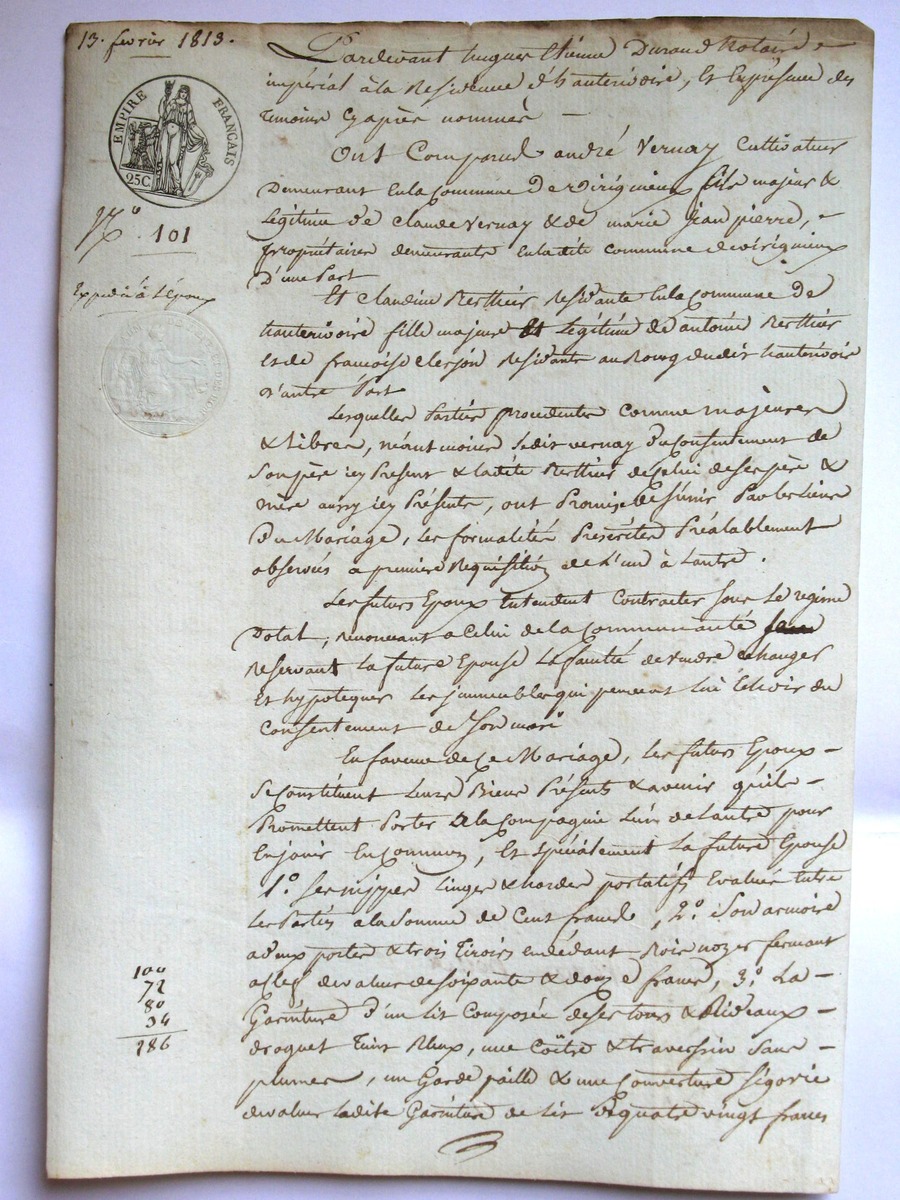 13. fevrier 1813.
EMPIRE FRANCAIS
25C
N.º 101
Expedié à L'Epoux
100
72
80
34
286
Pardevant hugues Etienne Durand Notaire
impérial à la Residence d'hauterivoire, Et En présence des
Temoins Cy apres nommés
Ont Comparu andré Vernay Cultivateur
Demeurant En la Commune De virigneux fils majeur &
Legitime de Claude Vernay & de marie jean pierre,
propriétaires demeurants en ladite commune de virigneux
D'une Part
Et Claudine Berthier residante En la Commune De
hauterivoire fille majeure Et Legitime de antoine Berthier
et de françoise Clerjon Residants au Bourg dudit hauterivoire
d'autre Part
Lesquelles Parties procedentes Comme majeures
& Libres, néantmoins Ledit vernay du Consentement de
Son père icy Present & ladite Berthier de Celui de ses père &
mère aussy icy Présents, ont Promis de s'unir Par les Liens
Du Mariage, Les formalités Prescrites Préalablement
observées a première Requisition de L'un à Lautre.
Les futurs Epoux Entendent Contracter Sous Le regime
Dotal, renoncant a Celui de la Communauté
Reservant La future Epouse La faculté de vendre echanger
Et hypotequer Les immeubles qui peuvent Lui Echoir du
Consentement de Son mari
En faveur de Ce Mariage, Les futurs Epoux
Se Constituent Leurs Biens Présents & avenir qu'ils
Promettent Porter à la Compagnie L'un de Lautre pour
En jouir En Commun, Et spécialement La future Epouse
1.º Ses nippes Linges & hardes portatifs Evalués Entre
Les Parties à la Somme de Cent francs, 2.º Son armoire
a deux portes & trois Tiroirs en dedant Bois noyer fermant
a Clef de valeur de soixante & douze francs, 3.º La
Garniture d'un Lit Composée de ses tours & Rideaux
droguet Teint Bleux, une Coitre & traversin Sans
plumes, un Garde paille & une Couverture Ségovie
de valeur ladite Garniture de Lit de quatre vingt francs